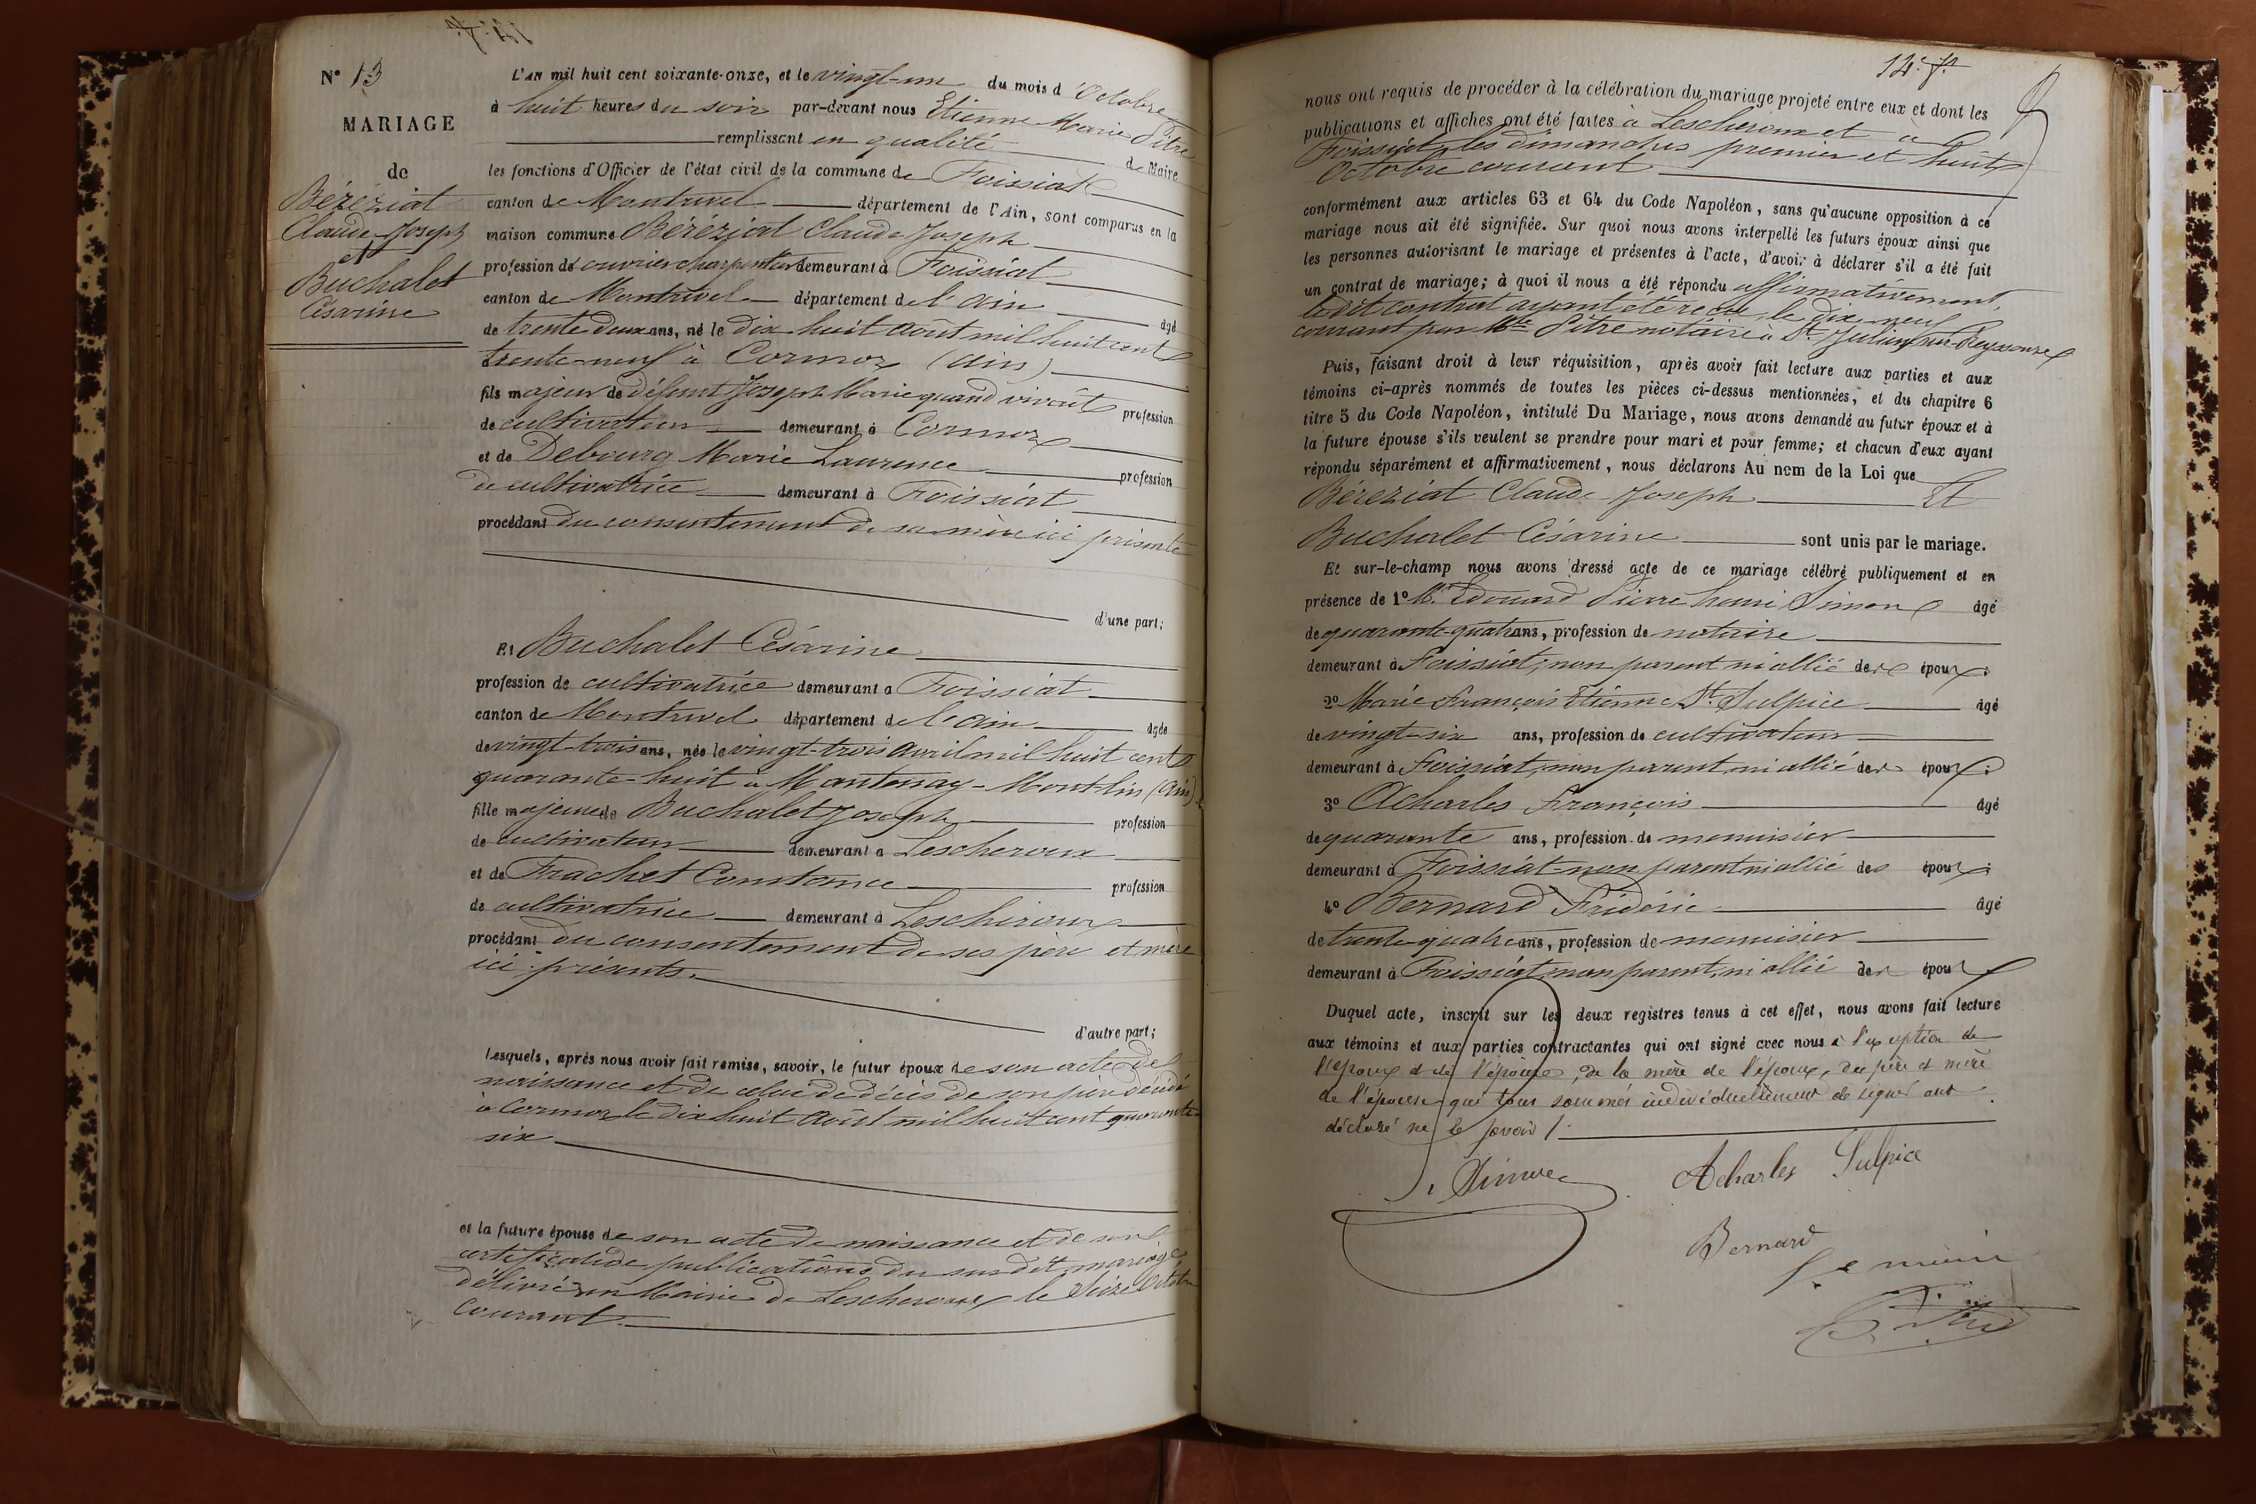 N° 13
MARIAGE
de
Béréziat
Claude Joseph
et
Buchalet
Césarine
L'AN mil huit cent soixante-onze, et le vingt-un du mois d'Octobre
à huit heures du soir par-devant nous Etienne Marie Pitre
remplissant en qualité de Maire
les fonctions d'Officier de l'état civil de la commune de Foissiat
canton de Montrevel département de l'Ain, sont comparus en la
maison commune Béréziat Claude Joseph
profession de ouvrier charpentier demeurant à Foissiat
canton de Montrevel département de l'Ain âgé
de trente deux ans, né le dix huit Août mil huit cent
trente-neuf à Cormoz (Ain)
fils majeur de défunt Joseph Marie quand vivait profession
de cultivateur demeurant à Cormoz
et de Debourg Marie Laurence profession
de cultivatrice demeurant à Foissiat
procédant du consentement de sa mère ici présente
d'une part;
Et Buchalet Césarine
profession de cultivatrice demeurant à Foissiat
canton de Montrevel département de l'Ain âgée
de vingt-trois ans, née le vingt-trois avril mil huit cent
quarante-huit à Mantenay-Montlin (Ain)
fille majeure de Buchalet Joseph profession
de cultivateur demeurant à Lescheroux
et de Frachet Constance profession
de cultivatrice demeurant à Lescheroux
procédant du consentement de ses père et mère
ici présents.
d'autre part;
Lesquels, après nous avoir fait remise, savoir, le futur époux de son acte de
naissance et de celui de décès de son père décédé
à Cormoz le dix huit Août mil huit cent quarante
six
et la future épouse de son acte de naissance et de son
certificat de publications du susdit mariage
délivré en Mairie de Lescheroux le Seize Octobre
courant.
14e f.
nous ont requis de procéder à la célébration du mariage projeté entre eux et dont les
publications et affiches ont été faites à Lescheroux et à
Foissiat les dimanches premier et huit
Octobre courant
conformément aux articles 63 et 64 du Code Napoléon, sans qu'aucune opposition à ce
mariage nous ait été signifiée. Sur quoi nous avons interpellé les futurs époux ainsi que
les personnes autorisant le mariage et présentes à l'acte, d'avoir à déclarer s'il a été fait
un contrat de mariage; à quoi il nous a été répondu affirmativement,
le dit contrat ayant été reçu le dix neuf
courant par Me Pitre notaire à St Julien sur Reyssouze
Puis, faisant droit à leur réquisition, après avoir fait lecture aux parties et aux
témoins ci-après nommés de toutes les pièces ci-dessus mentionnées, et du chapitre 6
titre 5 du Code Napoléon, intitulé Du Mariage, nous avons demandé au futur époux et à
la future épouse s'ils veulent se prendre pour mari et pour femme; et chacun d'eux ayant
répondu séparément et affirmativement, nous déclarons Au nom de la Loi que
Béréziat Claude Joseph Et
Buchalet Césarine sont unis par le mariage.
Et sur-le-champ nous avons dressé acte de ce mariage célébré publiquement et en
présence de 1° Mr. Edouard Pierre henri Simon âgé
de quarante-quatre ans, profession de notaire
demeurant à Foissiat, non parent ni allié des époux;
2° Marie François Etienne St. Sulpice âgé
de vingt-six ans, profession de cultivateur
demeurant à Foissiat, non parent ni allié des époux;
3° Acharles François âgé
de quarante ans, profession de menuisier
demeurant à Foissiat non parent ni allié des époux;
4° Bernard Frédéric âgé
de trente-quatre ans, profession de menuisier
demeurant à Foissiat, non parent, ni allié des époux
Duquel acte, inscrit sur les deux registres tenus à cet effet, nous avons fait lecture
aux témoins et aux parties contractantes qui ont signé avec nous à l'exception de
l'époux et de l'épouse, de la mère de l'époux, des père et mère
de l'épouse qui tous sommés individuellement de signer ont
déclaré ne le savoir /.
Simon
Acharles Sulpice
Bernard
Le maire
Pitre